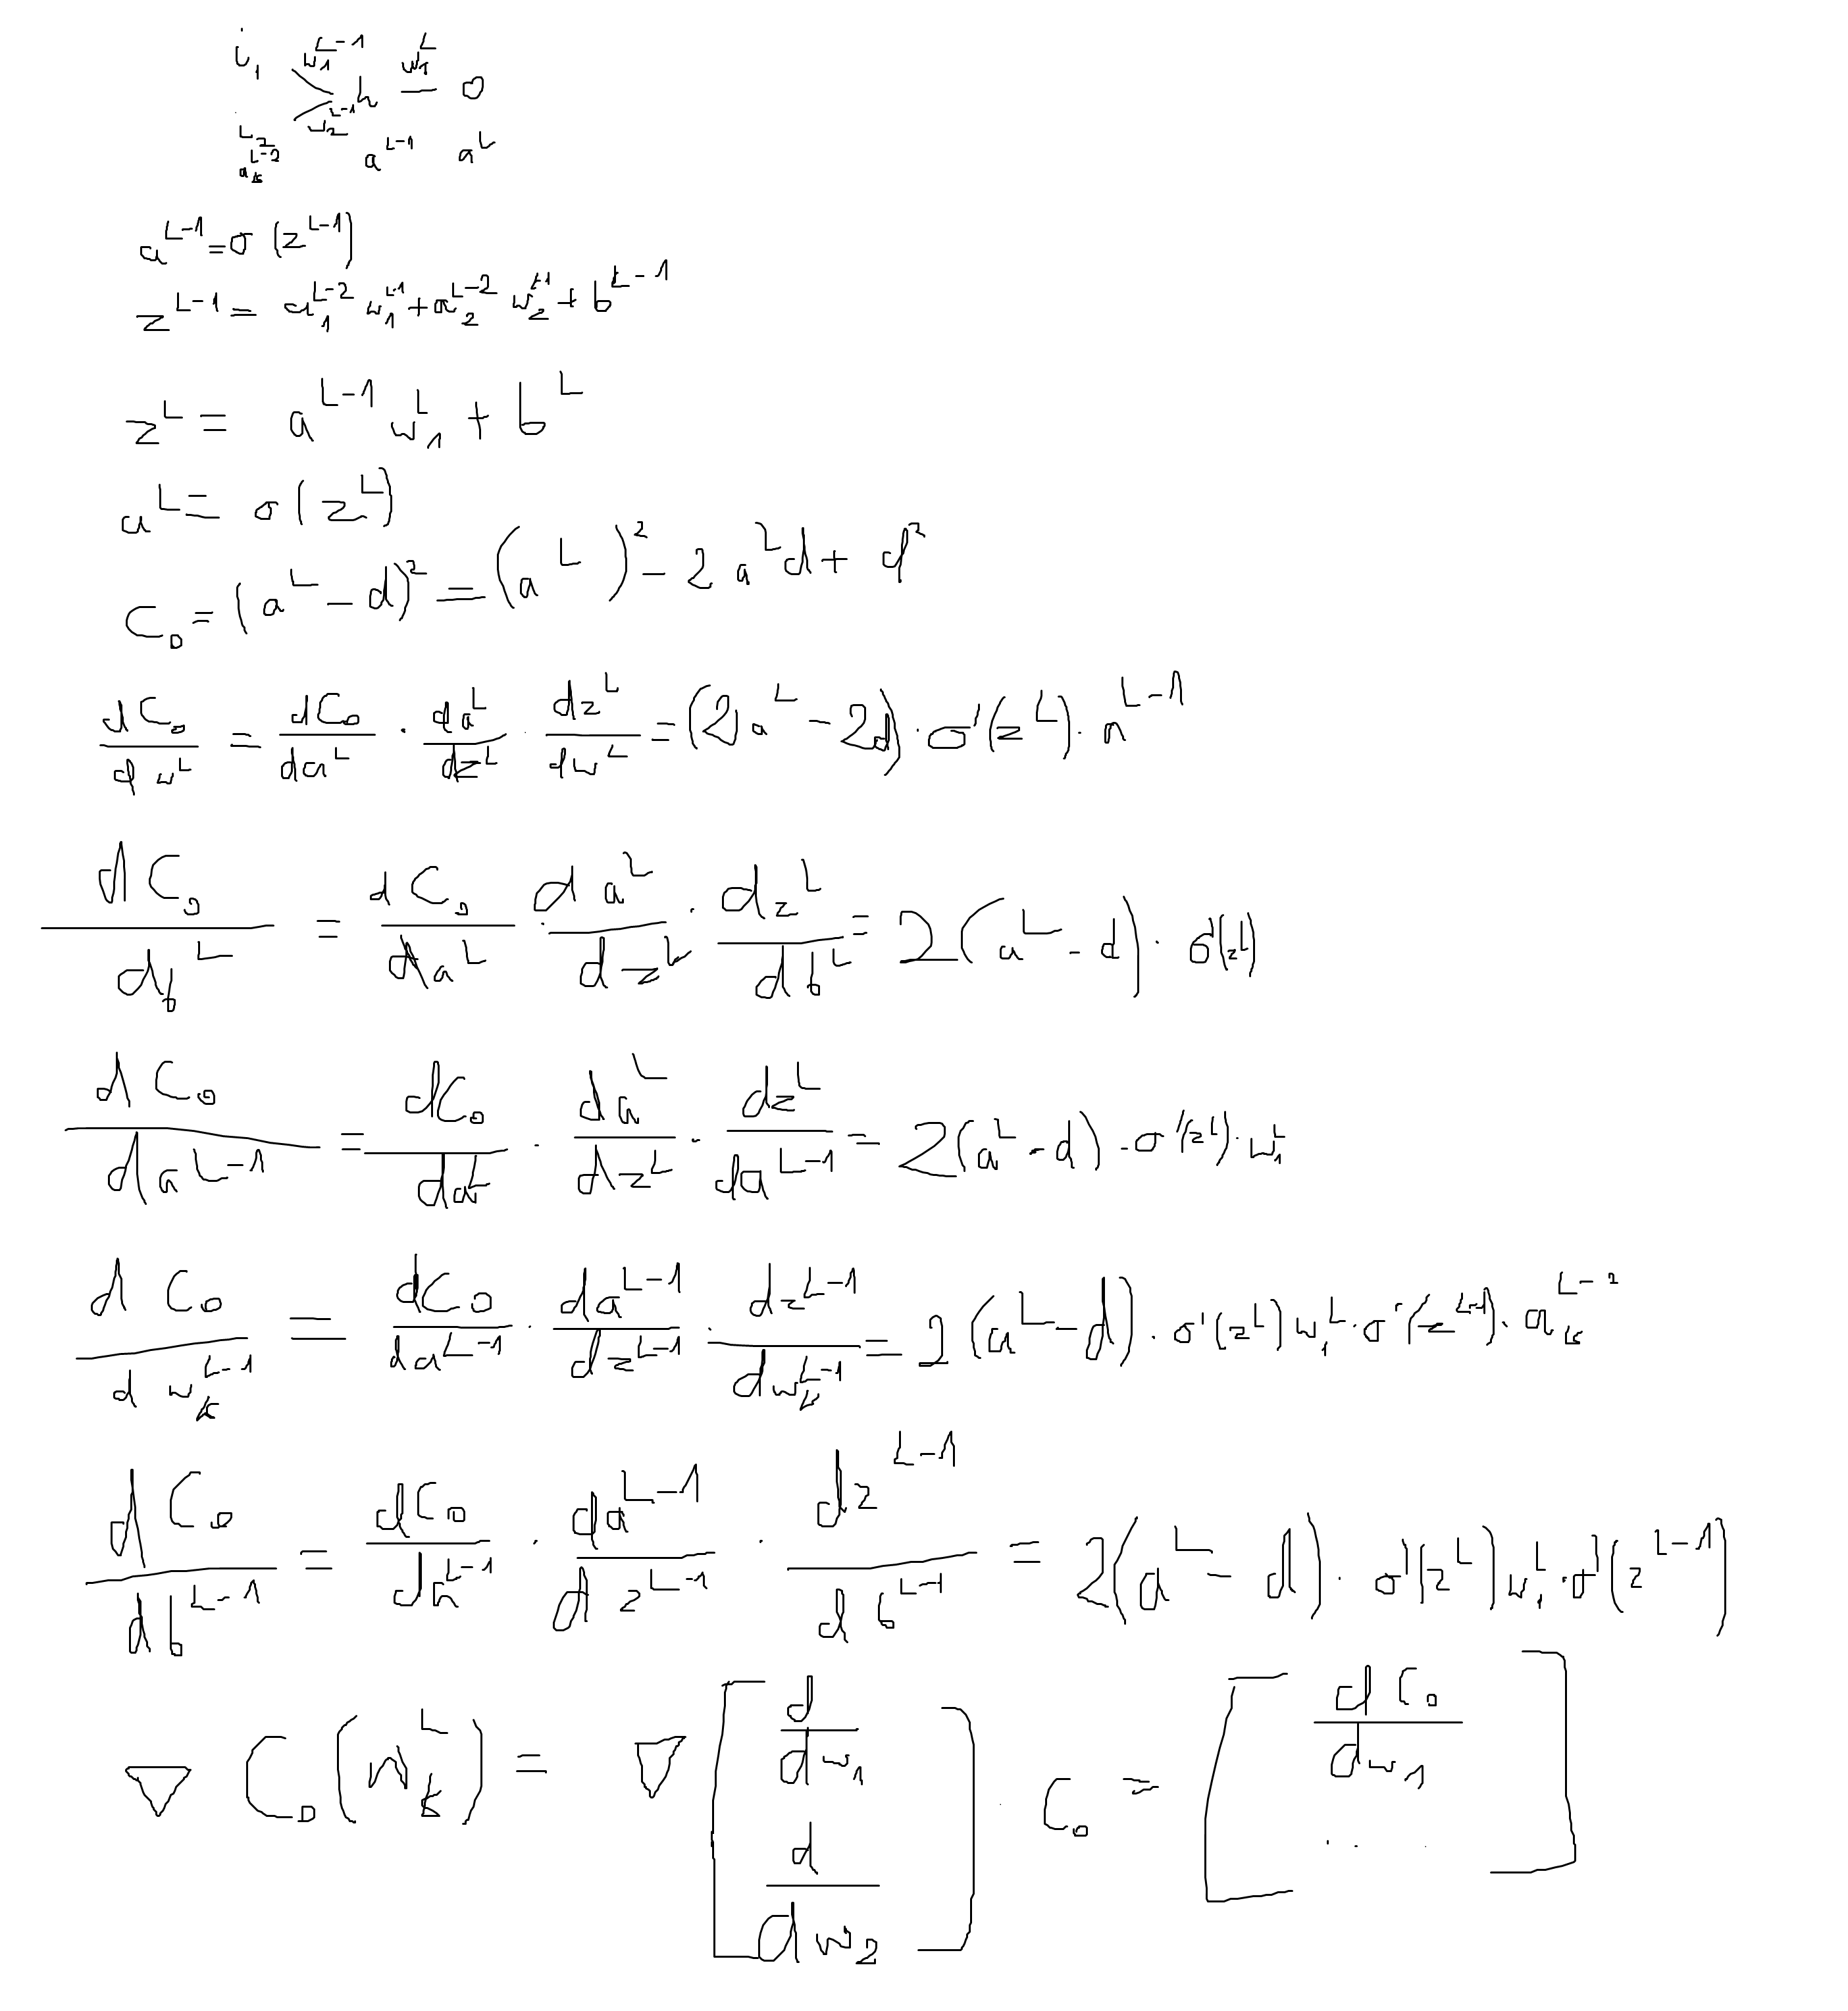 i₁ w₁^{L-1} w₁^L
h — o
i₂ w₂^{L-1}
aₖ^{L-2} a^{L-1} a^L
a^{L-1} = σ(z^{L-1})
z^{L-1} = a₁^{L-2} w₁^{L-1} + a₂^{L-2} w₂^{L-1} + b^{L-1}
z^L = a^{L-1} w₁^L + b^L
a^L = σ(z^L)
C₀ = (a^L - d)² = (a^L)² - 2a^L d + d²
dC₀/dw^L = dC₀/da^L · da^L/dz^L · dz^L/dw^L = (2a^L - 2d) · σ'(z^L) · a^{L-1}
dC₀/db^L = dC₀/da^L · da^L/dz^L · dz^L/db^L = 2(a^L - d) · σ'(z^L)
dC₀/da^{L-1} = dC₀/da^L · da^L/dz^L · dz^L/da^{L-1} = 2(a^L - d) · σ'(z^L) · w₁^L
dC₀/dwₖ^{L-1} = dC₀/da^{L-1} · da^{L-1}/dz^{L-1} · dz^{L-1}/dwₖ^{L-1} = 2(a^L - d) · σ'(z^L) w₁^L · σ'(z^{L-1}) · aₖ^{L-2}
dC₀/db^{L-1} = dC₀/da^{L-1} · da^{L-1}/dz^{L-1} · dz^{L-1}/db^{L-1} = 2(a^L - d) · σ'(z^L) w₁^L · σ'(z^{L-1})
∇ C₀(wₖ^L) = ∇ [d/dw₁ d/dw₂] · C₀ = [dC₀/dw₁ ...]